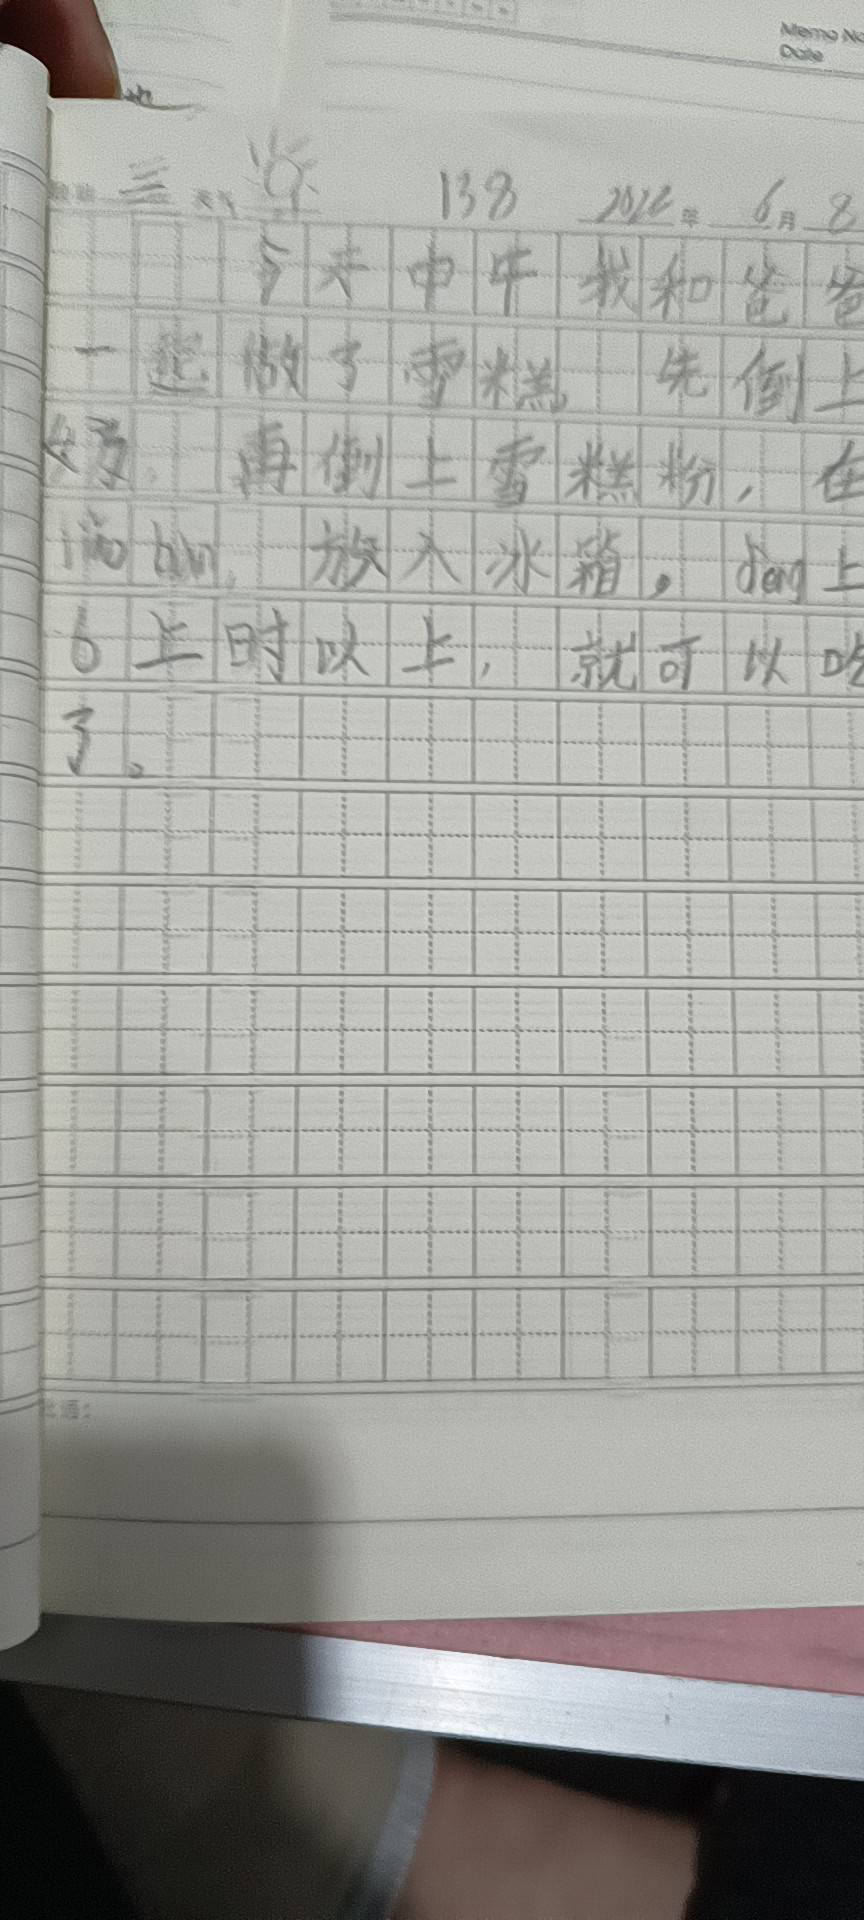 Memo No
Date
三 天气 138 2022年 6月 8
今天中午我和爸爸
一起做了雪糕 先倒上
再倒上雪糕粉，在
放入冰箱。deng上
6上时以上，就可以吃
了。